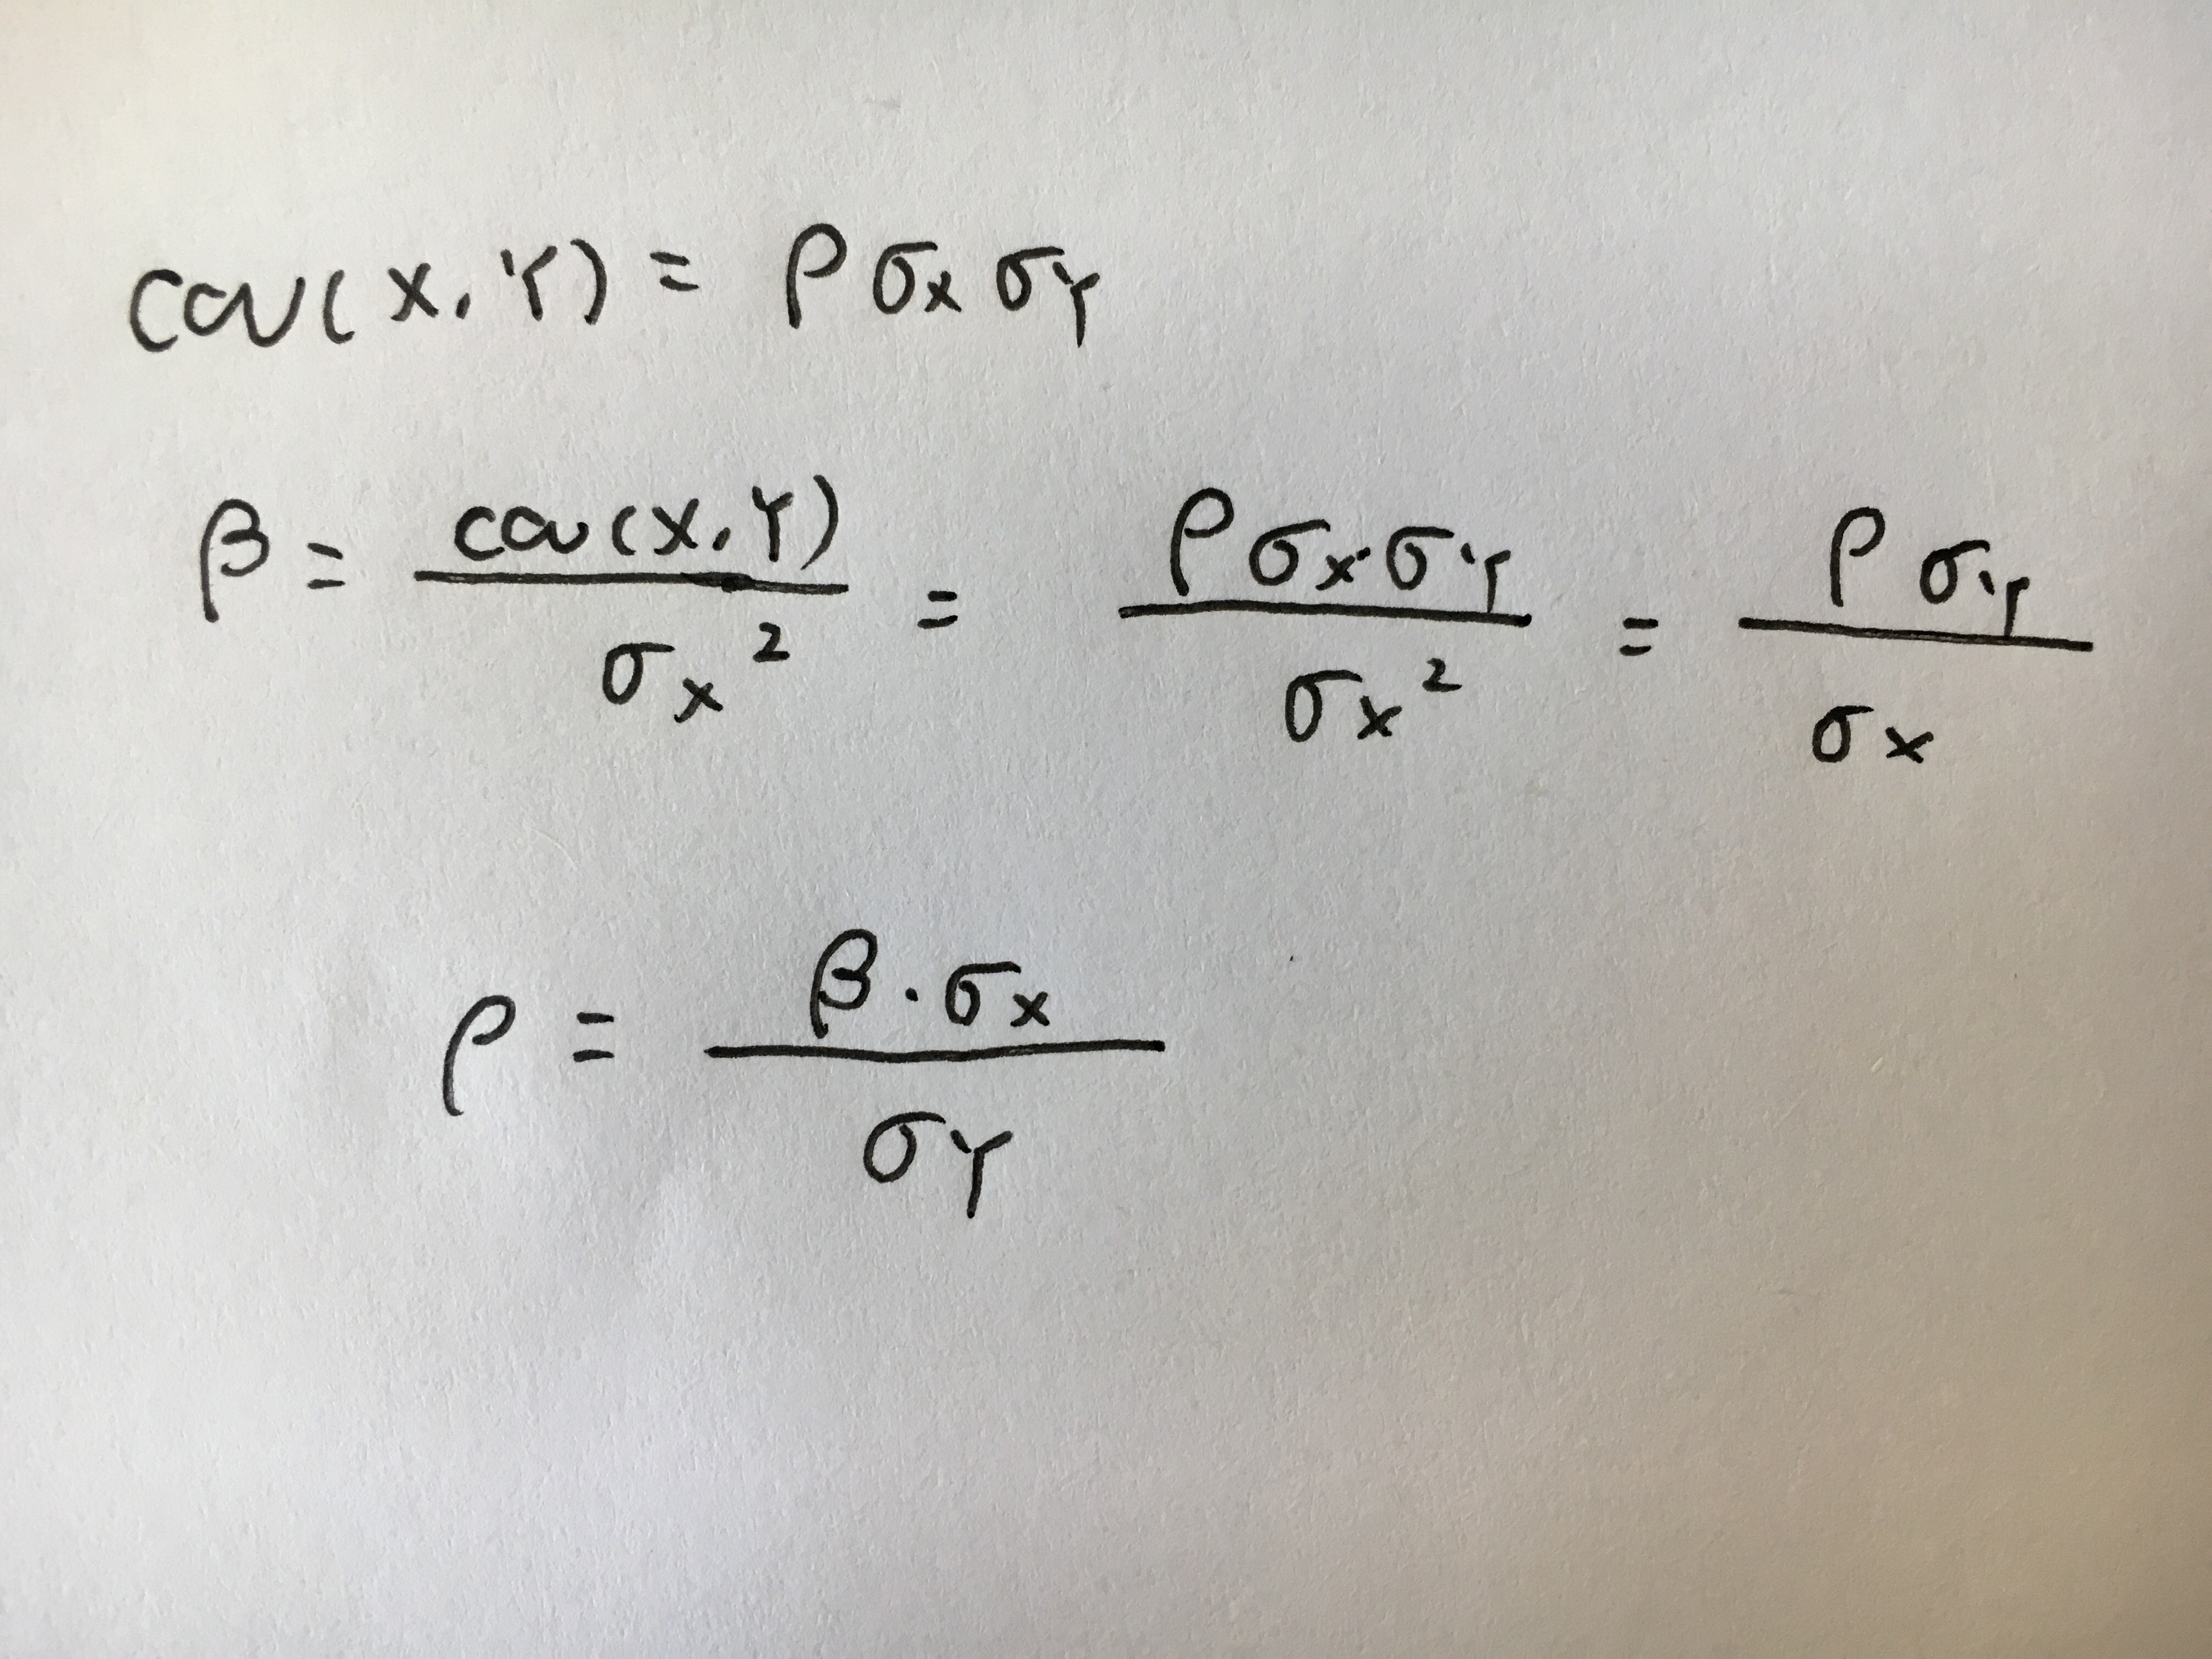 cov(X,Y) = ρ σx σY
β = cov(X,Y) / σx² = ρ σx·σY / σx² = ρ σY / σx
ρ = β · σx / σY